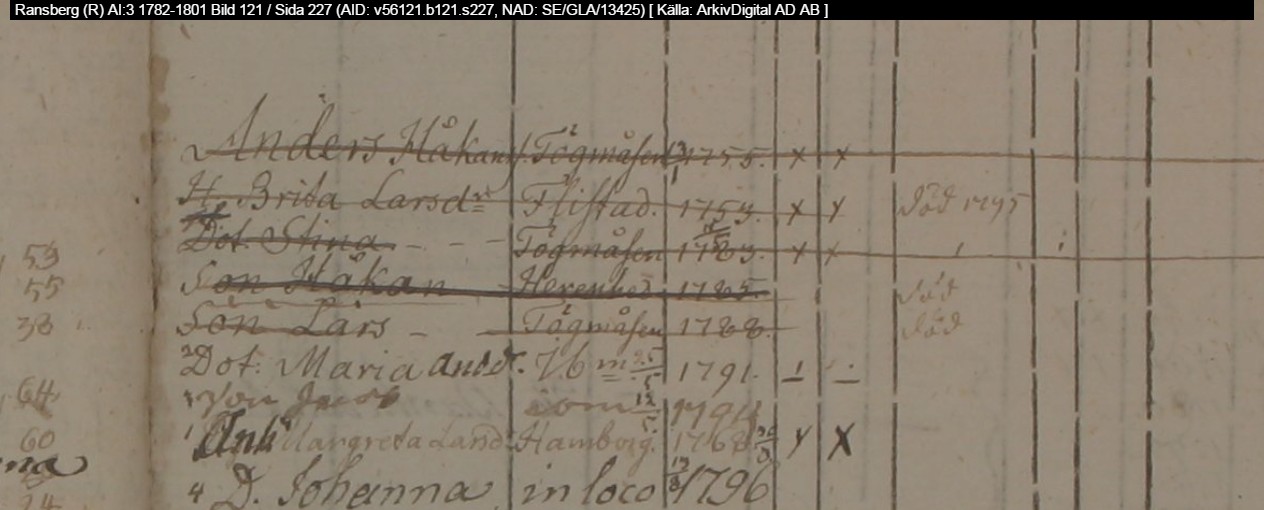 Ransberg (R) AI:3 1782-1801 Bild 121 / Sida 227 (AID: v56121.b121.s227, NAD: SE/GLA/13425) [ Källa: ArkivDigital AD AB ]
Anders Håkans. Togmåsen 1755. x x
H. Brita Larsdr Flistad. 1753. x y död 1795
Dot. Stina - - - Togmåsen 1783. x x
59 Son Håkan - 1785.
55 död
38 Son Lars - Togmåsen 1788. död
2 Dot. Maria Andr. Ib m 25/5 1791.
64 Son 12/5
60 1 Margreta Land Hamborg. 1768 y X
na
24 4 D. Johanna in loco 1796